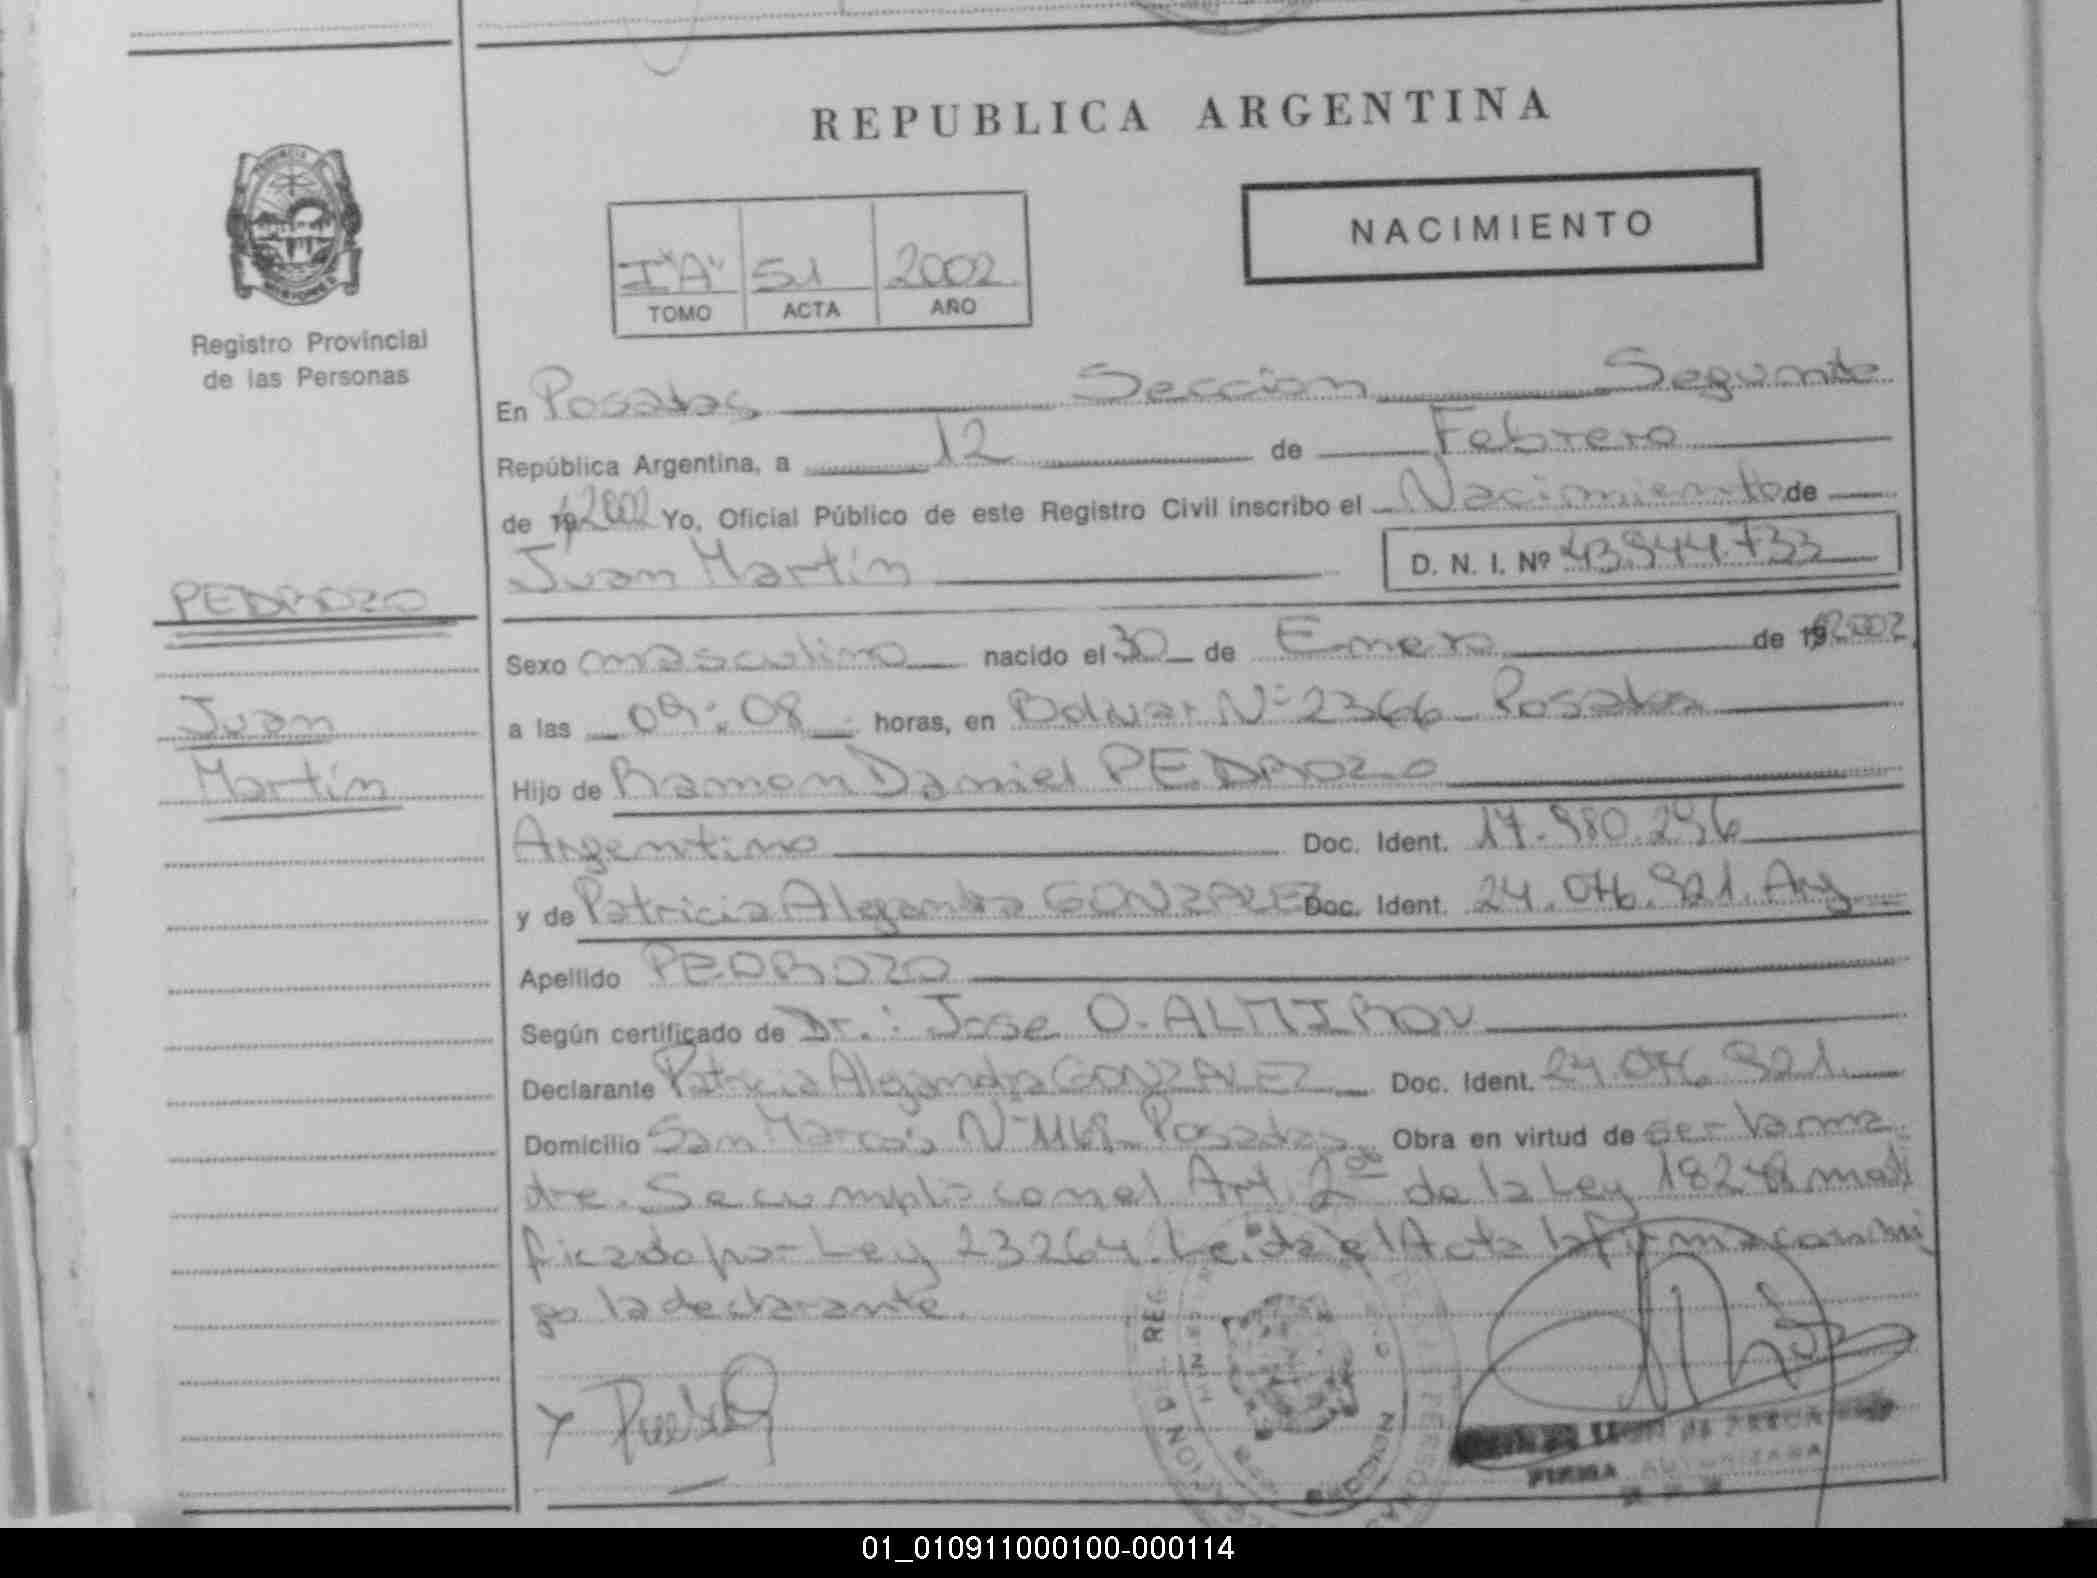 REPUBLICA ARGENTINA
NACIMIENTO
I "A" 51 2002
TOMO ACTA AÑO
Registro Provincial
de las Personas
En Posadas Seccion Segunda
República Argentina, a 12 de Febrero
de 19 2002 Yo, Oficial Público de este Registro Civil inscribo el Nacimiento de
Juan Martín D. N. I. Nº 43.944.733
PEDROZO
Juan
Martín
Sexo masculino nacido el 30 de Enero de 19 2002
a las 09:08 horas, en Bolivar Nº 2366 Posadas
Hijo de Ramon Daniel PEDROZO
Argentino Doc. Ident. 17.980.296
y de Patricia Alejandra GONZALEZ Doc. Ident. 24.076.921. Arg
Apellido PEDROZO
Según certificado de Dr.: Jose O. ALMIRON
Declarante Patricia Alejandra GONZALEZ Doc. Ident. 24.076.921
Domicilio San Marcos Nº Posadas Obra en virtud de ser la ma
dre. Se cumple con el Art. 2do de la Ley 18248 modi
ficado por Ley 23264. Leida el Acta la firma conmi
go la declarante.
FIRMA AUTORIZADA
01_010911000100-000114